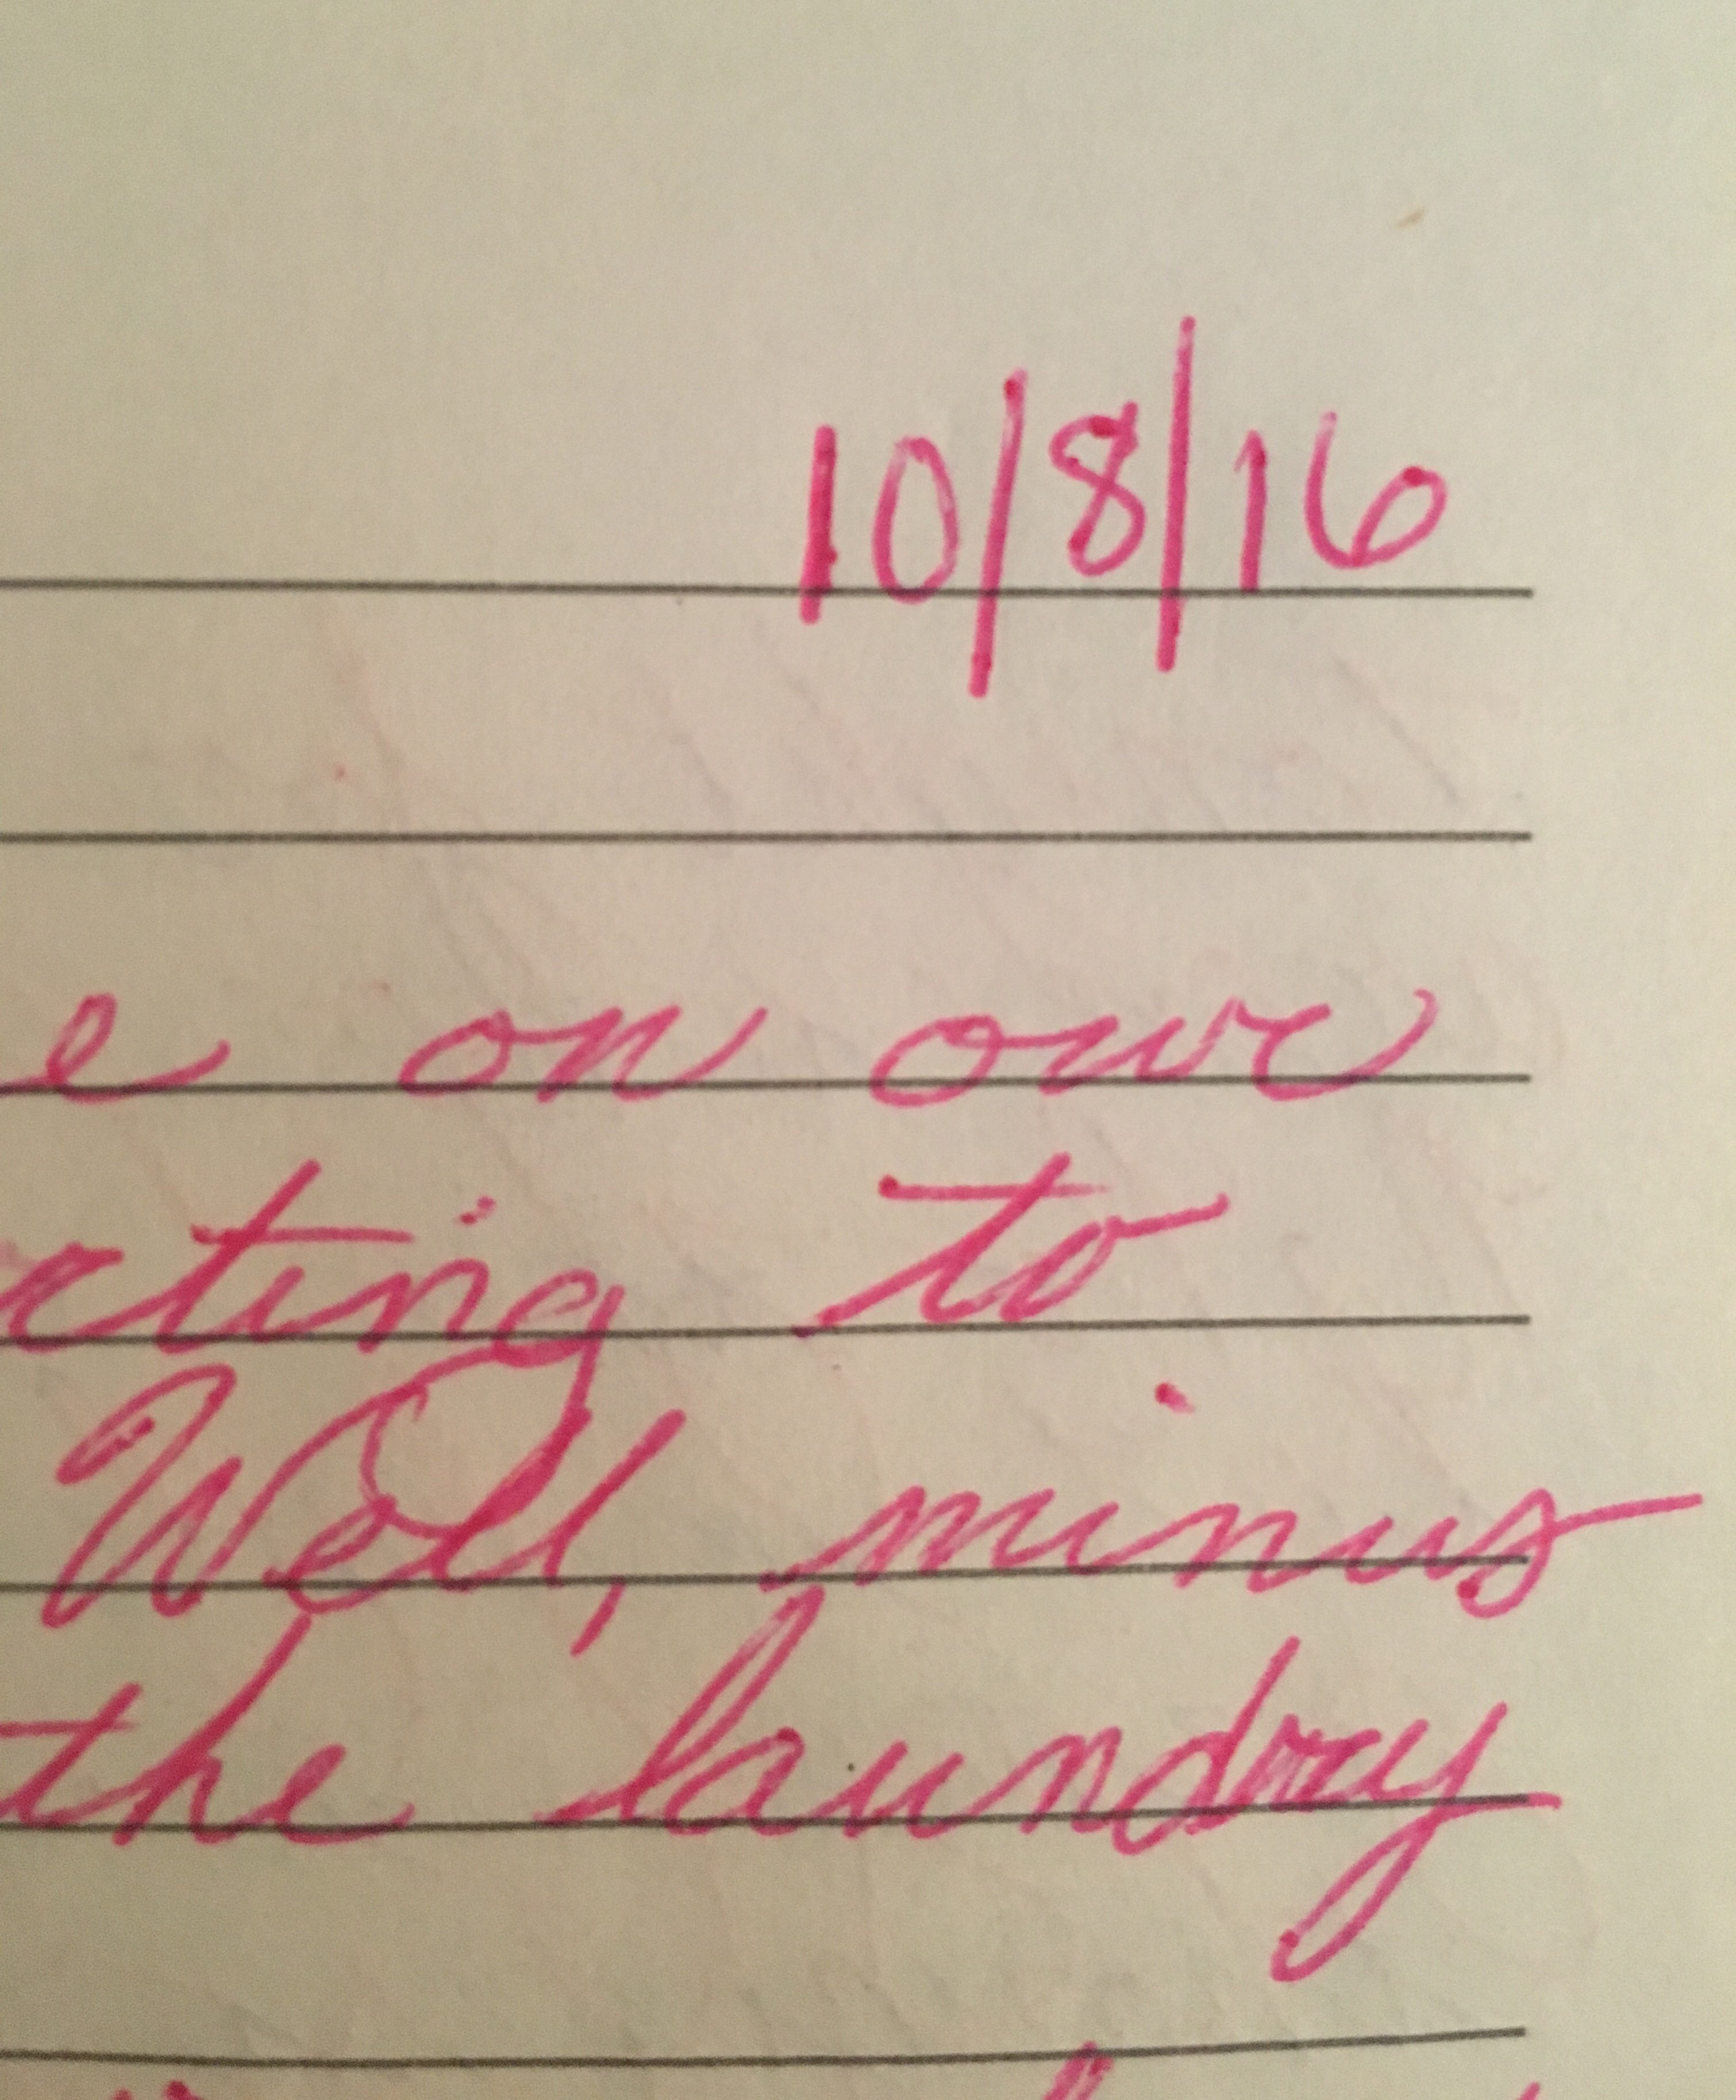 10/8/16
e on our
rting to
Well, minus
the laundry